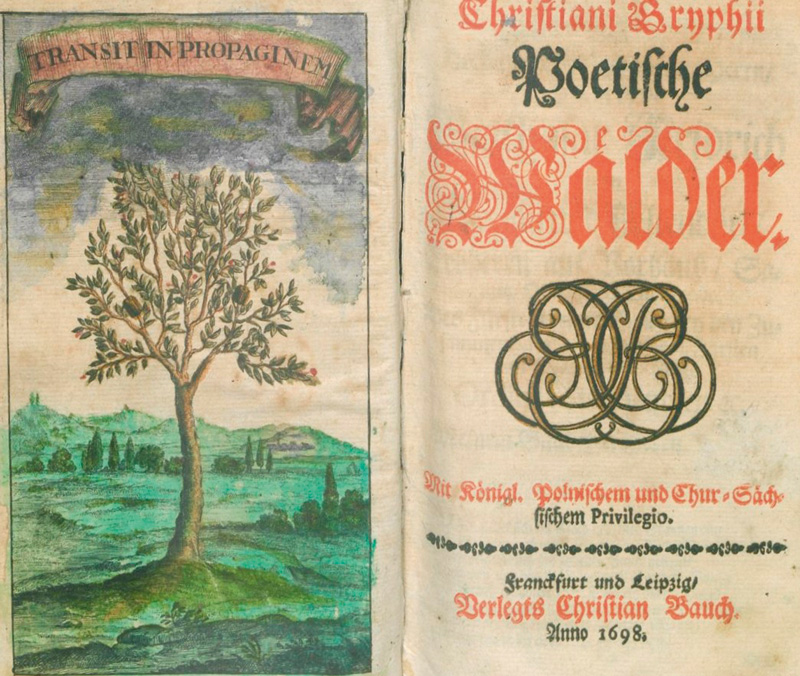 TRANSIT IN PROPAGINEM
Christiani Gryphii
Poetische
Wälder.
Mit Königl. Polnischem und Chur-Säch-
sischem Privilegio.
Franckfurt und Leipzig/
Verlegts Christian Bauch.
Anno 1698.